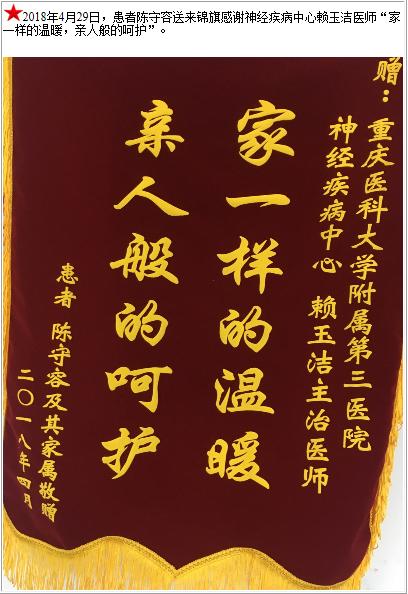 ★2018年4月29日，患者陈守容送来锦旗感谢神经疾病中心赖玉洁医师“家
一样的温暖，亲人般的呵护”。
赠：重庆医科大学附属第三医院
神经疾病中心 赖玉洁主治医师
家一样的温暖
亲人般的呵护
患者 陈守容及其家属敬赠
二〇一八年四月